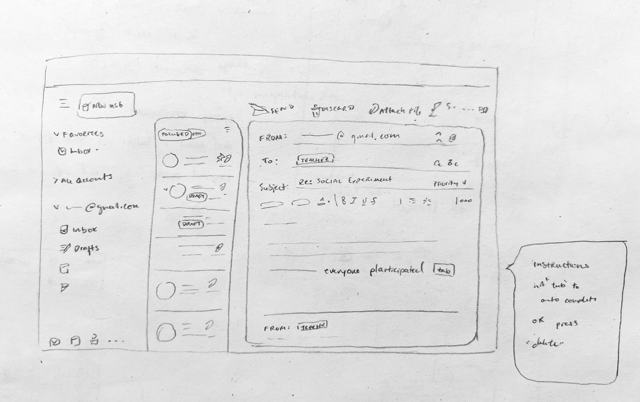 New msg
Favorites
Inbox
All Accounts
@gmail.com
Inbox
Drafts
Focused
DRAFT
DRAFT
SEND
DISCARD
Attach File
...
FROM: @ gmail.com
To: TEACHER
Cc Bc
Subject: Re: Social Experiment
Priority ↓
B I U S
everyone participated tab
FROM:
Instructions
hit "tab" to
auto complete
OR press
"delete"